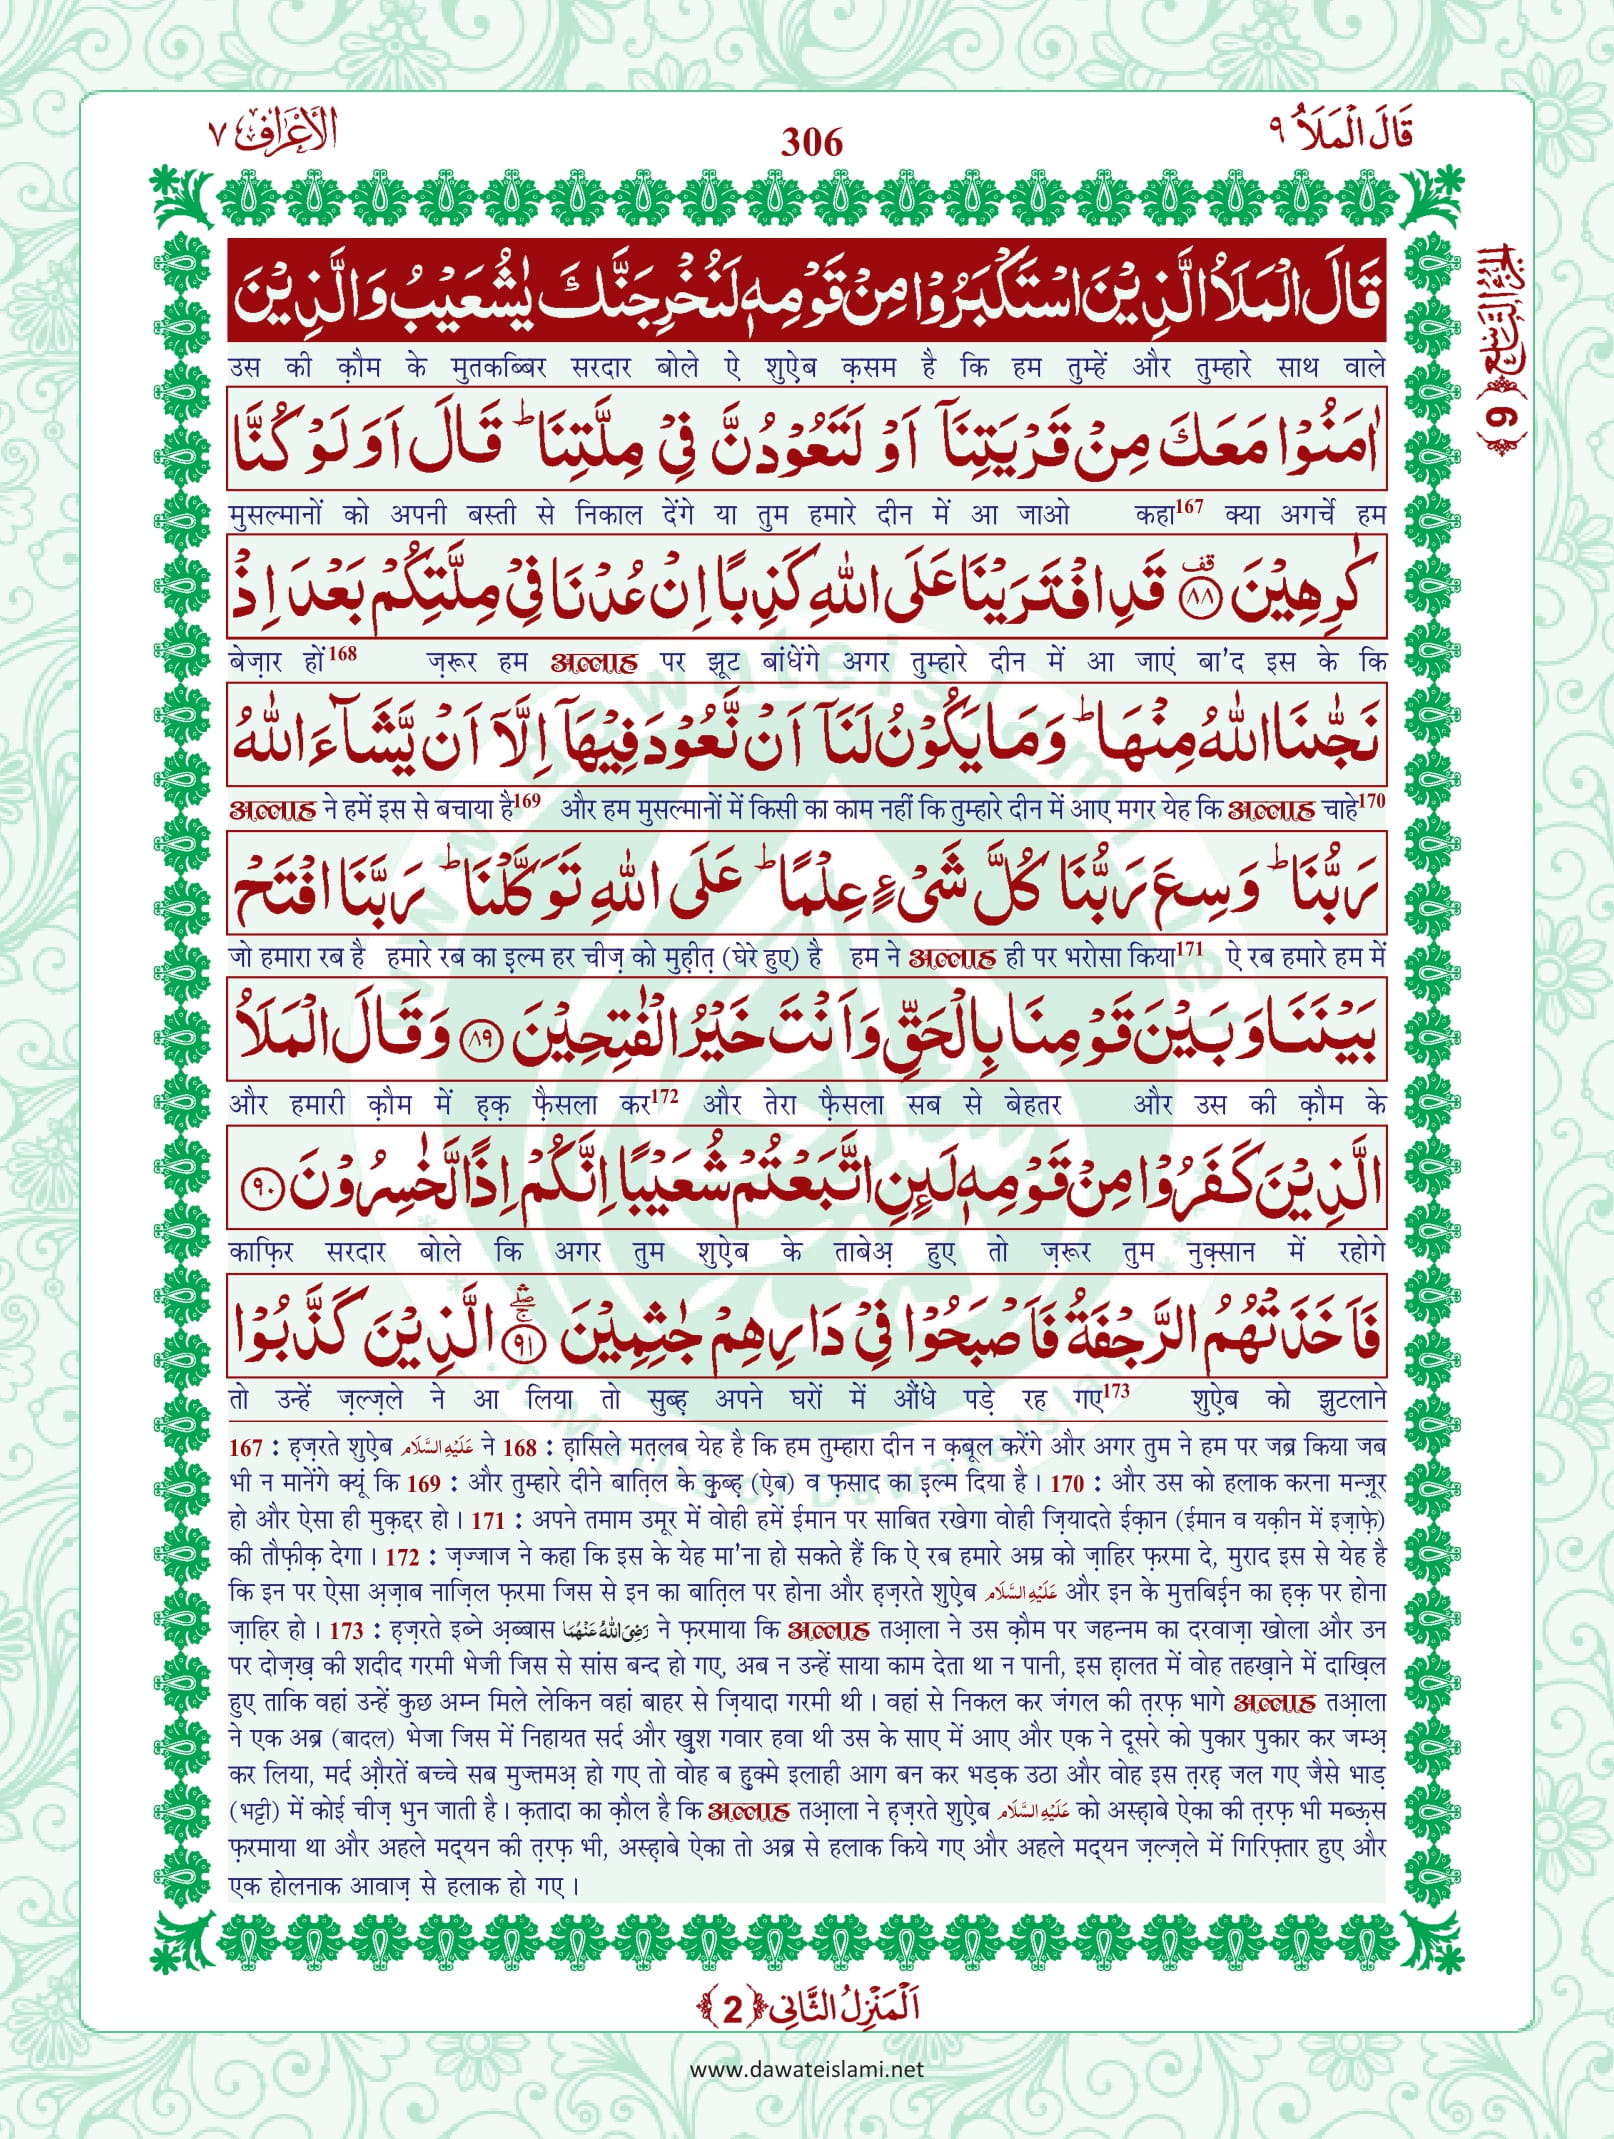 الأعراف ٧
306
قَالَ الْمَلَاُ ٩
الجزء التاسع ﴿9﴾
قَالَ الْمَلَاُ الَّذِیْنَ اسْتَكْبَرُوْا مِنْ قَوْمِهٖ لَنُخْرِجَنَّكَ یٰشُعَیْبُ وَ الَّذِیْنَ
उस की क़ौम के मुतकब्बिर सरदार बोले ऐ शुऐब क़सम है कि हम तुम्हें और तुम्हारे साथ वाले
اٰمَنُوْا مَعَكَ مِنْ قَرْیَتِنَاۤ اَوْ لَتَعُوْدُنَّ فِیْ مِلَّتِنَاؕ قَالَ اَوَ لَوْ كُنَّا
मुसल्मानों को अपनी बस्ती से निकाल देंगे या तुम हमारे दीन में आ जाओ कहा167 क्या अगर्चे हम
كٰرِهِیْنَ قف ﴿۸۸﴾ قَدِ افْتَرَیْنَا عَلَى اللّٰهِ كَذِبًا اِنْ عُدْنَا فِیْ مِلَّتِكُمْ بَعْدَ اِذْ
बेज़ार हों168 ज़रूर हम अल्लाह पर झूट बांधेंगे अगर तुम्हारे दीन में आ जाएं बा'द इस के कि
نَجّٰىنَا اللّٰهُ مِنْهَاؕ وَ مَا یَكُوْنُ لَنَاۤ اَنْ نَّعُوْدَ فِیْهَاۤ اِلَّاۤ اَنْ یَّشَآءَ اللّٰهُ
अल्लाह ने हमें इस से बचाया है169 और हम मुसल्मानों में किसी का काम नहीं कि तुम्हारे दीन में आए मगर येह कि अल्लाह चाहे170
رَبُّنَاؕ وَسِعَ رَبُّنَا كُلَّ شَیْءٍ عِلْمًاؕ عَلَى اللّٰهِ تَوَكَّلْنَاؕ رَبَّنَا افْتَحْ
जो हमारा रब है हमारे रब का इल्म हर चीज़ को मुह़ीत़ (घेरे हुए) है हम ने अल्लाह ही पर भरोसा किया171 ऐ रब हमारे हम में
بَیْنَنَا وَ بَیْنَ قَوْمِنَا بِالْحَقِّ وَ اَنْتَ خَیْرُ الْفٰتِحِیْنَ ﴿۸۹﴾ وَ قَالَ الْمَلَاُ
और हमारी क़ौम में ह़क़ फ़ैसला कर172 और तेरा फ़ैसला सब से बेहतर और उस की क़ौम के
الَّذِیْنَ كَفَرُوْا مِنْ قَوْمِهٖ لَىِٕنِ اتَّبَعْتُمْ شُعَیْبًا اِنَّكُمْ اِذًا لَّخٰسِرُوْنَ ﴿۹۰﴾
काफ़िर सरदार बोले कि अगर तुम शुऐब के ताबेअ़ हुए तो ज़रूर तुम नुक़्सान में रहोगे
فَاَخَذَتْهُمُ الرَّجْفَةُ فَاَصْبَحُوْا فِیْ دَارِهِمْ جٰثِمِیْنَ ﴿۹۱﴾ الَّذِیْنَ كَذَّبُوْا
तो उन्हें ज़ल्ज़ले ने आ लिया तो सुब्ह़ अपने घरों में औंधे पड़े रह गए173 शुऐब को झुटलाने
167 : ह़ज़रते शुऐब عَلَيْهِ السَّلَام ने 168 : ह़ासिले मत़लब येह है कि हम तुम्हारा दीन न क़बूल करेंगे और अगर तुम ने हम पर जब्र किया जब
भी न मानेंगे क्यूं कि 169 : और तुम्हारे दीने बात़िल के क़ुब्ह़ (ऐब) व फ़साद का इल्म दिया है। 170 : और उस को हलाक करना मन्ज़ूर
हो और ऐसा ही मुक़द्दर हो। 171 : अपने तमाम उमूर में वोही हमें ईमान पर साबित रखेगा वोही ज़ियादते ईक़ान (ईमान व यक़ीन में इज़ाफ़े)
की तौफ़ीक़ देगा। 172 : ज़ज्जाज ने कहा कि इस के येह मा'ना हो सकते हैं कि ऐ रब हमारे अम्र को ज़ाहिर फ़रमा दे, मुराद इस से येह है
कि इन पर ऐसा अ़ज़ाब नाज़िल फ़रमा जिस से इन का बात़िल पर होना और ह़ज़रते शुऐब عَلَيْهِ السَّلَام और इन के मुत्तबिईन का ह़क़ पर होना
ज़ाहिर हो। 173 : ह़ज़रते इब्ने अ़ब्बास رَضِیَ اللّٰهُ عَنْهُمَا ने फ़रमाया कि अल्लाह तआ़ला ने उस क़ौम पर जहन्नम का दरवाज़ा खोला और उन
पर दोज़ख़ की शदीद गरमी भेजी जिस से सांस बन्द हो गए, अब न उन्हें साया काम देता था न पानी, इस ह़ालत में वोह तहख़ाने में दाख़िल
हुए ताकि वहां उन्हें कुछ अम्न मिले लेकिन वहां बाहर से ज़ियादा गरमी थी। वहां से निकल कर जंगल की त़रफ़ भागे अल्लाह तआ़ला
ने एक अब्र (बादल) भेजा जिस में निहायत सर्द और ख़ुश गवार हवा थी उस के साए में आए और एक ने दूसरे को पुकार पुकार कर जम्अ़
कर लिया, मर्द औ़रतें बच्चे सब मुज्तमअ़ हो गए तो वोह ब हुक्मे इलाही आग बन कर भड़क उठा और वोह इस त़रह़ जल गए जैसे भाड़
(भट्टी) में कोई चीज़ भुन जाती है। क़तादा का क़ौल है कि अल्लाह तआ़ला ने ह़ज़रते शुऐब عَلَيْهِ السَّلَام को अस्ह़ाबे ऐका की त़रफ़ भी मब्ऊ़स
फ़रमाया था और अहले मद्यन की त़रफ़ भी, अस्ह़ाबे ऐका तो अब्र से हलाक किये गए और अहले मद्यन ज़ल्ज़ले में गिरिफ़्तार हुए और
एक होलनाक आवाज़ से हलाक हो गए।
اَلْمَنْزِلُ الثَّانِی ﴿2﴾
www.dawateislami.net